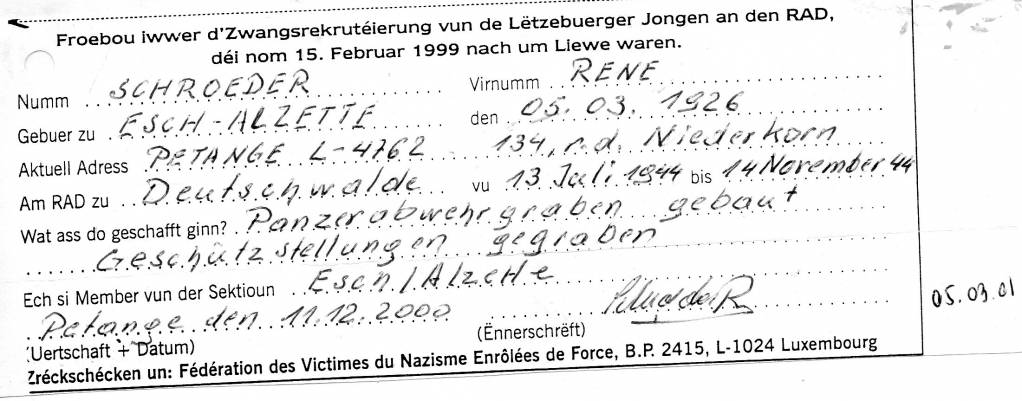 Froebou iwwer d'Zwangsrekrutéierung vun de Lëtzebuerger Jongen an den RAD,
déi nom 15. Februar 1999 nach um Liewe waren.
Numm SCHROEDER Virnumm RENE
Gebuer zu ESCH-ALZETTE den 05.03.1926
Aktuell Adress PETANGE L-4762 134, r.d. Niederkorn
Am RAD zu Deutschwalde vu 13 Juli 1944 bis 14 November 44
Wat ass do geschafft ginn? Panzerabwehrgraben gebaut
Geschützstellungen gegraben
Ech si Member vun der Sektioun Esch/Alzette
Petange den 11.12.2000
(Uertschaft + Datum) (Ënnerschrëft)
05.03.01
Zréckschécken un: Fédération des Victimes du Nazisme Enrôlées de Force, B.P. 2415, L-1024 Luxembourg